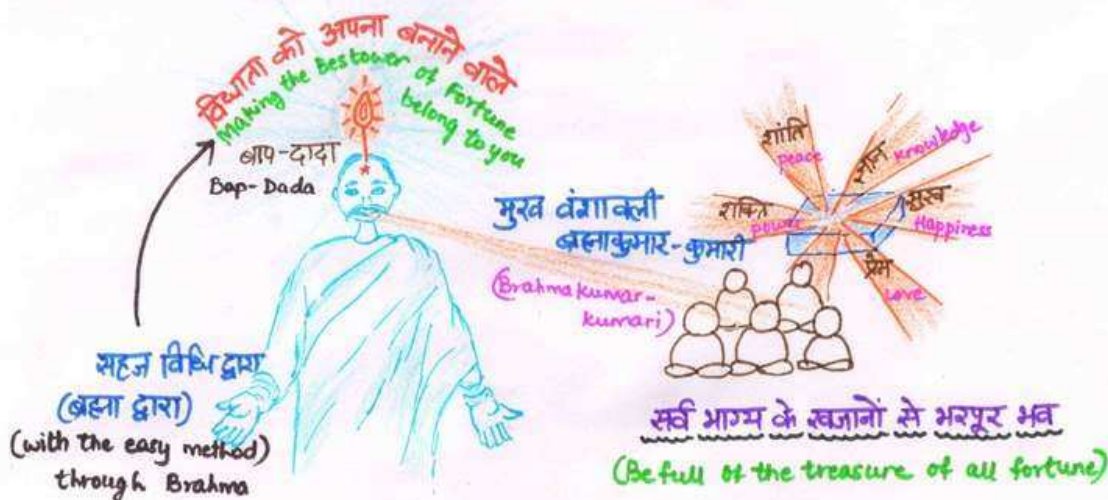 विधाता को अपना बनाने वाले
Making the Bestower of Fortune
belong to you
बाप-दादा
Bap-Dada
मुख वंशावली
ब्रह्माकुमार-कुमारी
(Brahmakumar-
kumari)
शांति
peace
ज्ञान
knowledge
शक्ति
power
सुख
Happiness
प्रेम
Love
सहज विधि द्वारा
(ब्रह्मा द्वारा)
(with the easy method)
through Brahma
सर्व भाग्य के खजानों से भरपूर भव
(Be full of the treasure of all fortune)